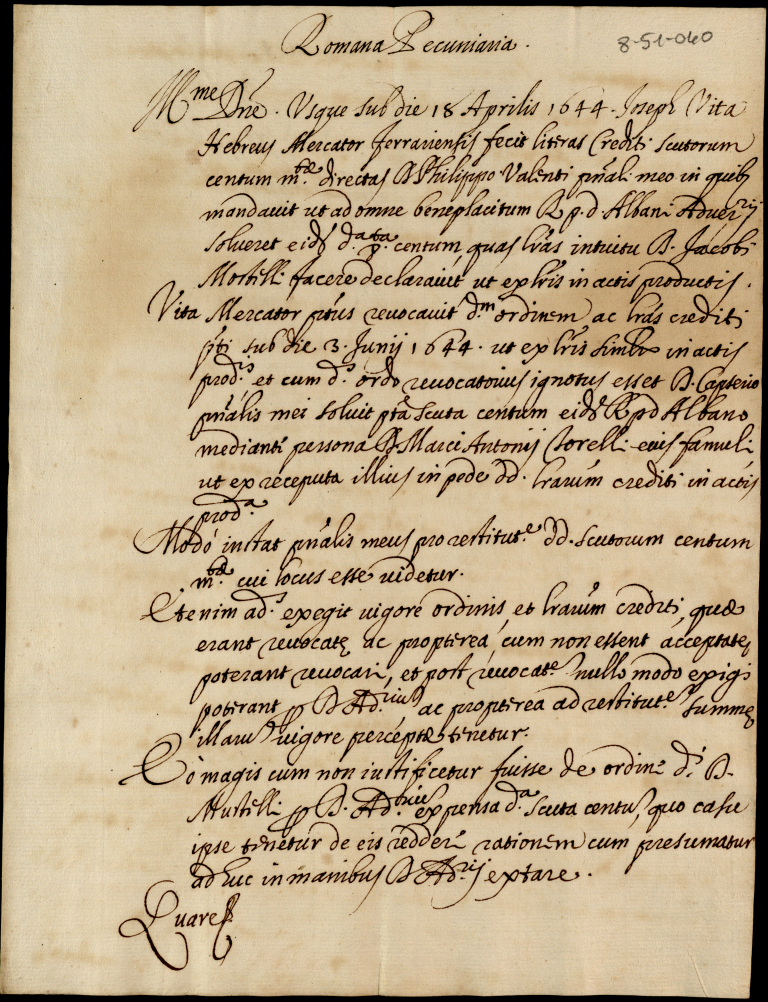 Romana Pecuniaria.
8-51-040
Mme Dne. Usque sub die 18 Aprilis 1644. Joseph Vita
Hebreus Mercator ferrariensis fecit literas Crediti scutorum
centum mtæ directas D. Philippo Valenti pnãli meo in quib
mandavit ut ad omne beneplacitum R. p. d. Albani
solveret eid. d.ta centum quas lrãs intuitu D. Jacobi
Mostelli facere declaravit ut ex lrĩs in actis productis.
Vita Mercator pñs revocavit d.m ordinem ac lrãs crediti
sub die 3. Junij 1644. ut ex lrĩs in actis
prod.s et cum d.s ordo revocatorius ignotus esset D.
pnãlis mei solvit ptã scuta centum eid. R. p. d. Albano
mediante persona D. Marci Antonij Torelli eius famuli
ut ex receputa illius in pede dd. lrarũm crediti in actis
prod.a
Modò instat pnãlis meus pro restitut.e dd. scutorum centum
m.tæ cui locus esse videtur.
Etenim ad.s exegit vigore ordinis, et lrarũm crediti, quæ
erant revocatę ac propterea, cum non essent acceptatę,
poterant revocari, et post revocat.e nullo modo exigi
poterant p D. Ad.rium ac propterea ad restitut.e summę
illarũ vigore perceptæ tenetur.
Eò magis cum non iustificetur fuisse de ordine d.i D.
Mustelli p D. Ad.rium expensa d.a scuta centũ, quo casu
ipse tenetur de eis reddere rationem cum presumatur
ad huc in manibus D. Ad.rij extare.
Quare